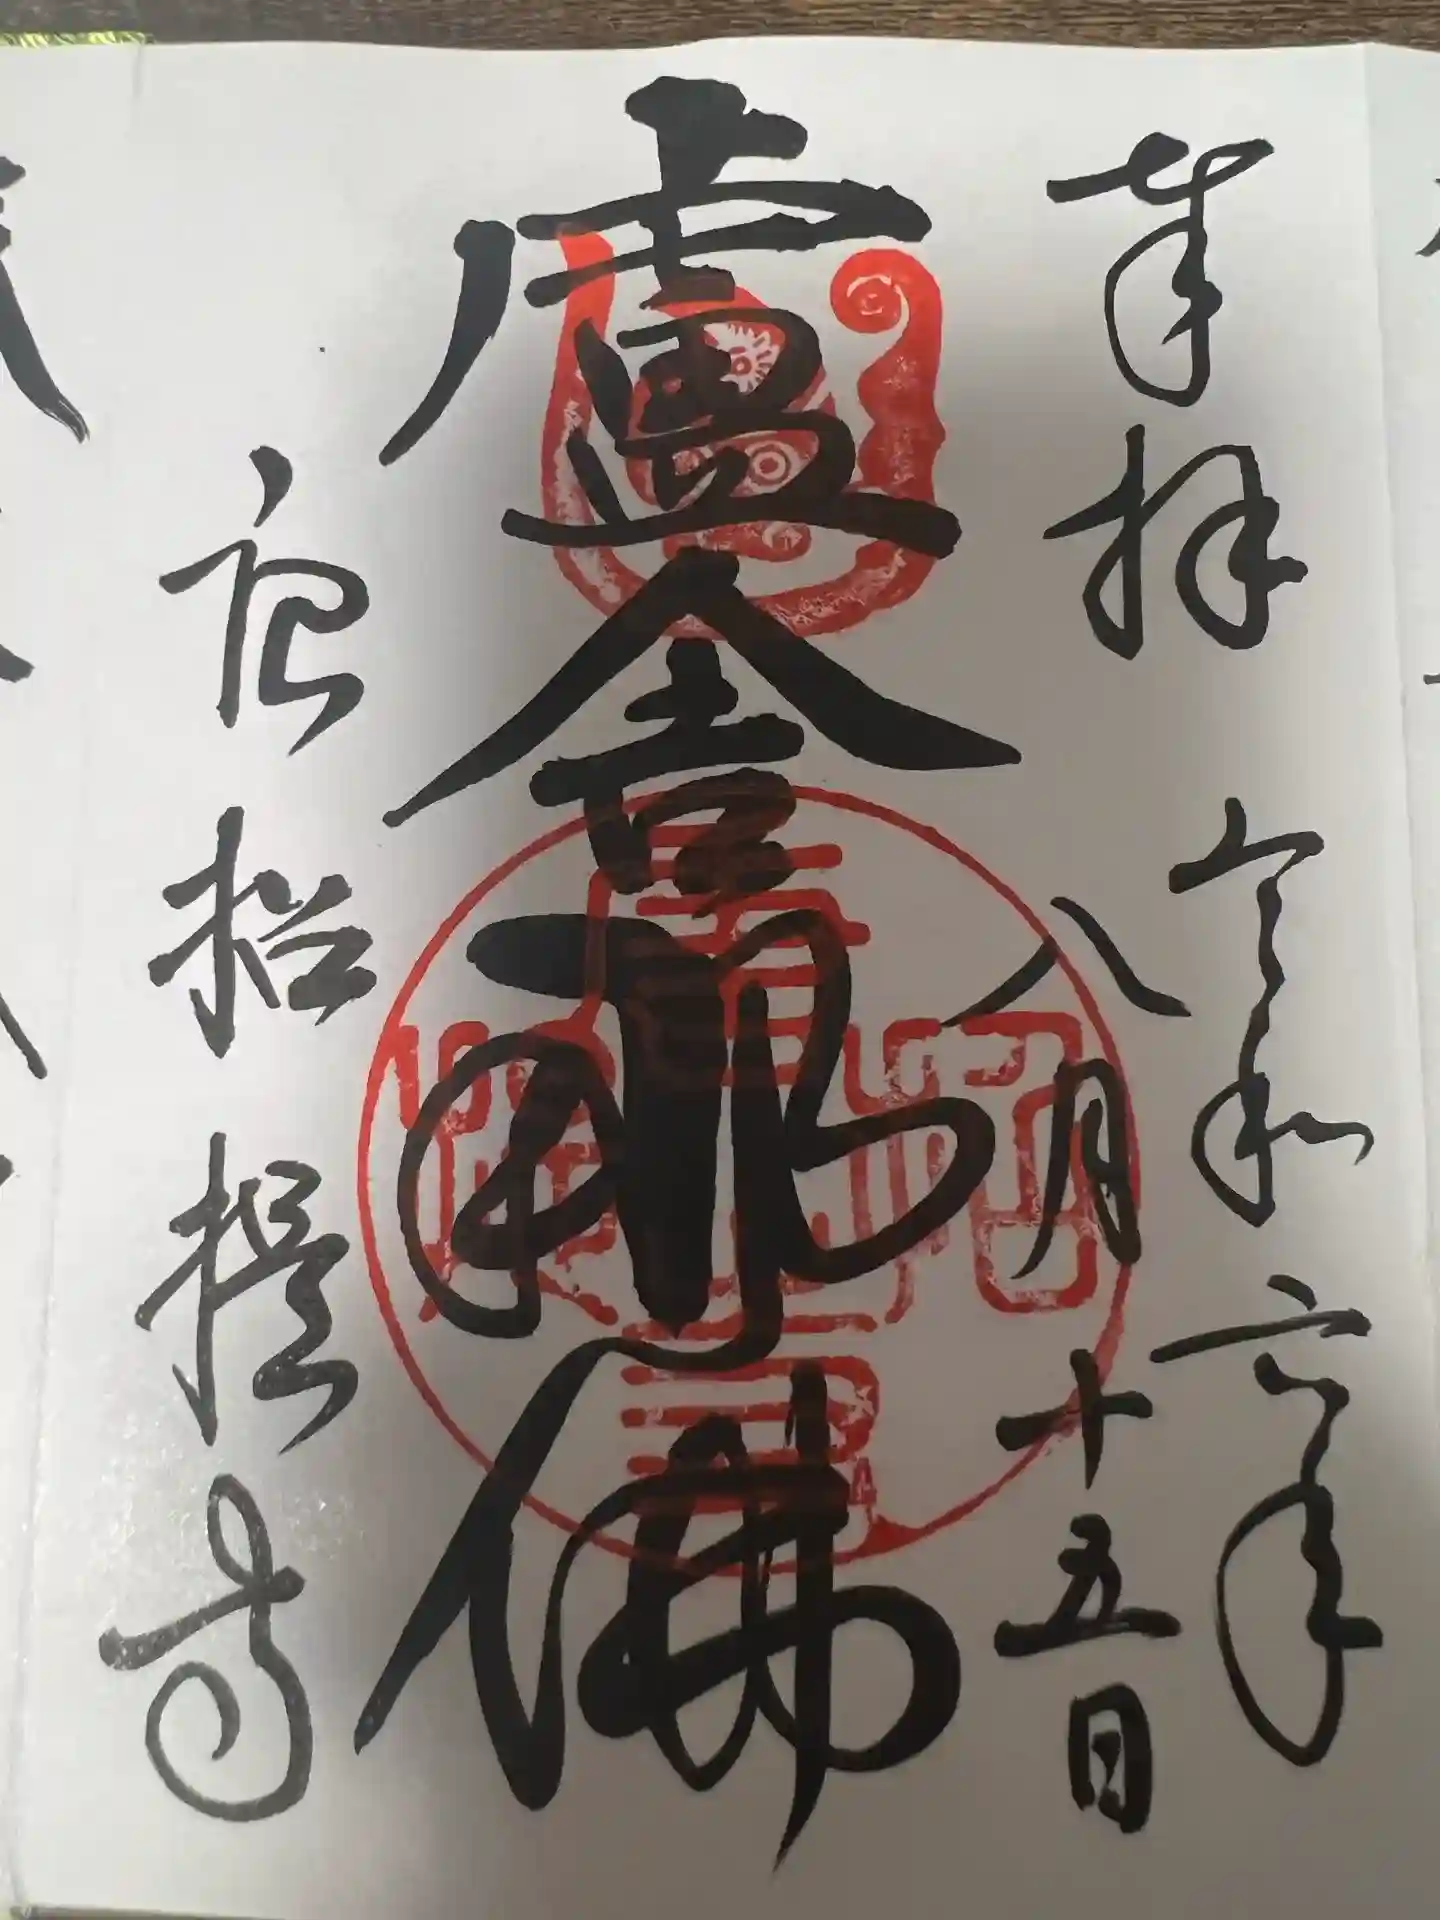 奉拝
令和六年
八月十五日
盧舎那佛
唐招提寺